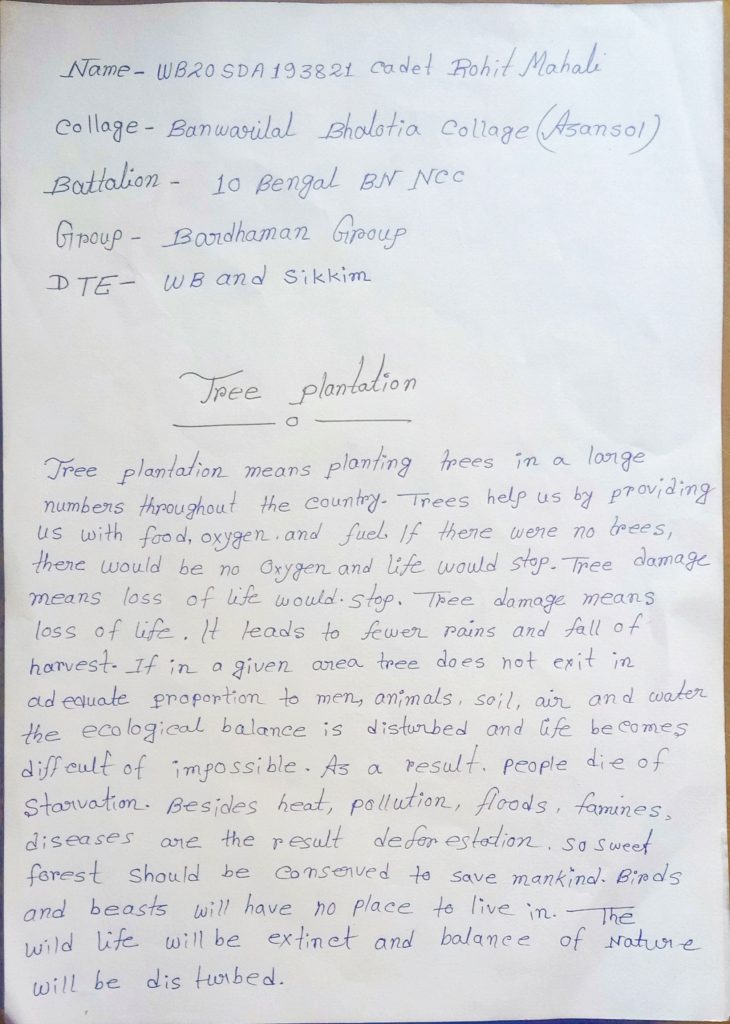 Name - WB20SDA193821 Cadet Rohit Mahali
Collage - Banwarilal Bhalotia Collage (Asansol)
Battalion - 10 Bengal BN NCC
Group - Bardhaman Group
DTE - WB and Sikkim
Tree plantation
Tree plantation means planting trees in a large
numbers throughout the country. Trees help us by providing
us with food, oxygen. and fuel. If there were no trees,
there would be no Oxygen and life would stop. Tree damage
means loss of life would. stop. Tree damage means
loss of life. It leads to fewer rains and fall of
harvest. If in a given area tree does not exit in
adequate proportion to men, animals, soil, air and water
the ecological balance is disturbed and life becomes
difficult of impossible. As a result. people die of
Starvation. Besides heat, pollution, floods, famines,
diseases are the result deforestation. So sweet
forest should be conserved to save mankind. Birds
and beasts will have no place to live in. The
wild life will be extinct and balance of Nature
will be disturbed.